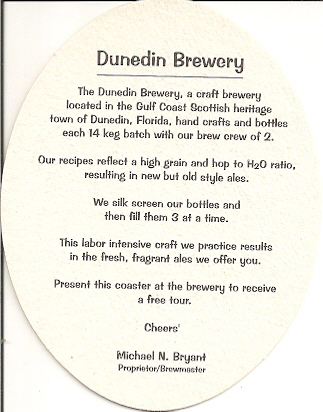 Dunedin Brewery
The Dunedin Brewery, a craft brewery
located in the Gulf Coast Scottish heritage
town of Dunedin, Florida, hand crafts and bottles
each 14 keg batch with our brew crew of 2.
Our recipes reflect a high grain and hop to H2O ratio,
resulting in new but old style ales.
We silk screen our bottles and
then fill them 3 at a time.
This labor intensive craft we practice results
in the fresh, fragrant ales we offer you.
Present this coaster at the brewery to receive
a free tour.
Cheers'
Michael N. Bryant
Proprietor/Brewmaster